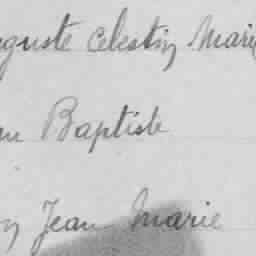 guste Celestin Marie
Baptiste
Jean Marie